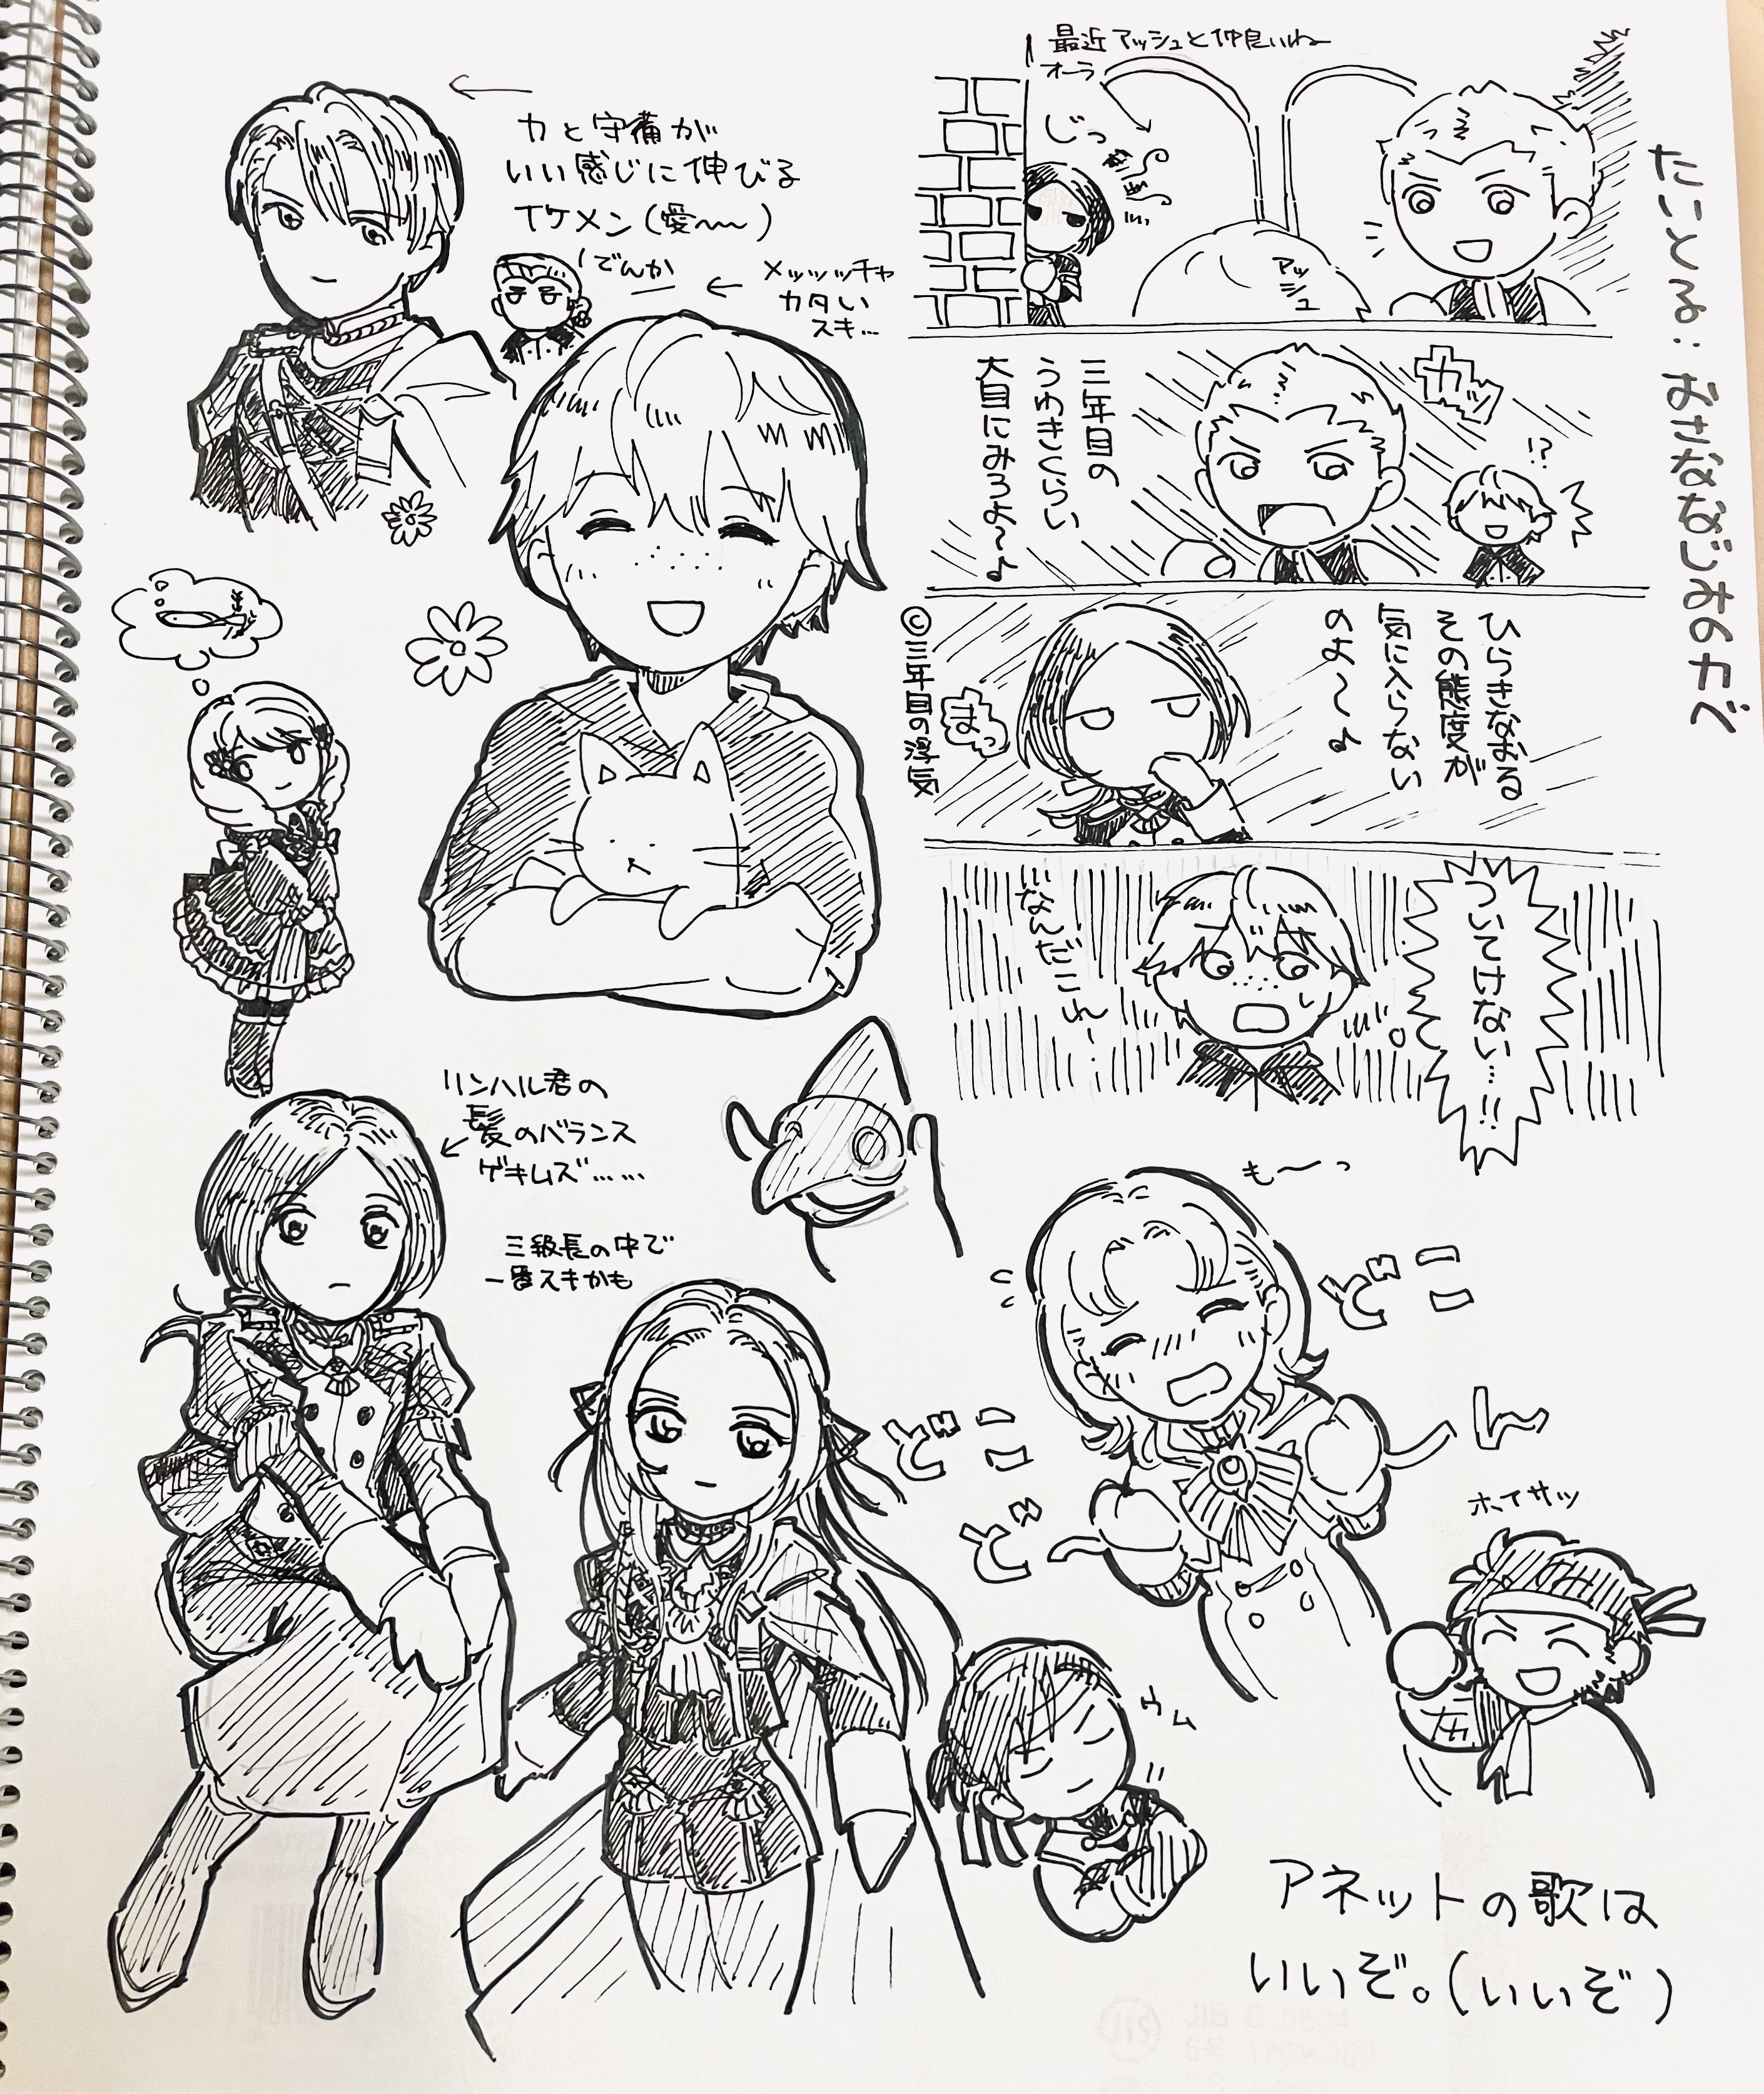 力と守備が
いい感じに伸びる
イケメン(愛〜〜)
でんか
メッッッチャ
カタい
スキ…
たいとる:おさななじみのカベ
最近アッシュと仲良いね
オーラ
じっ
アッシュ
カッ
!?
三年目の
うわきくらい
大目にみろよ〜♪
ひらきなおる
その態度が
気に入らない
のよ〜♪
まっ
©三年目の浮気
ついてけない…!!
…なんだこれ…
リンハル君の
髪のバランス
ゲキムズ……
三級長の中で
一番スキかも
も〜っ
ど
ど
ど
ホイサッ
ウム
アネットの歌は
いいぞ。(いいぞ)